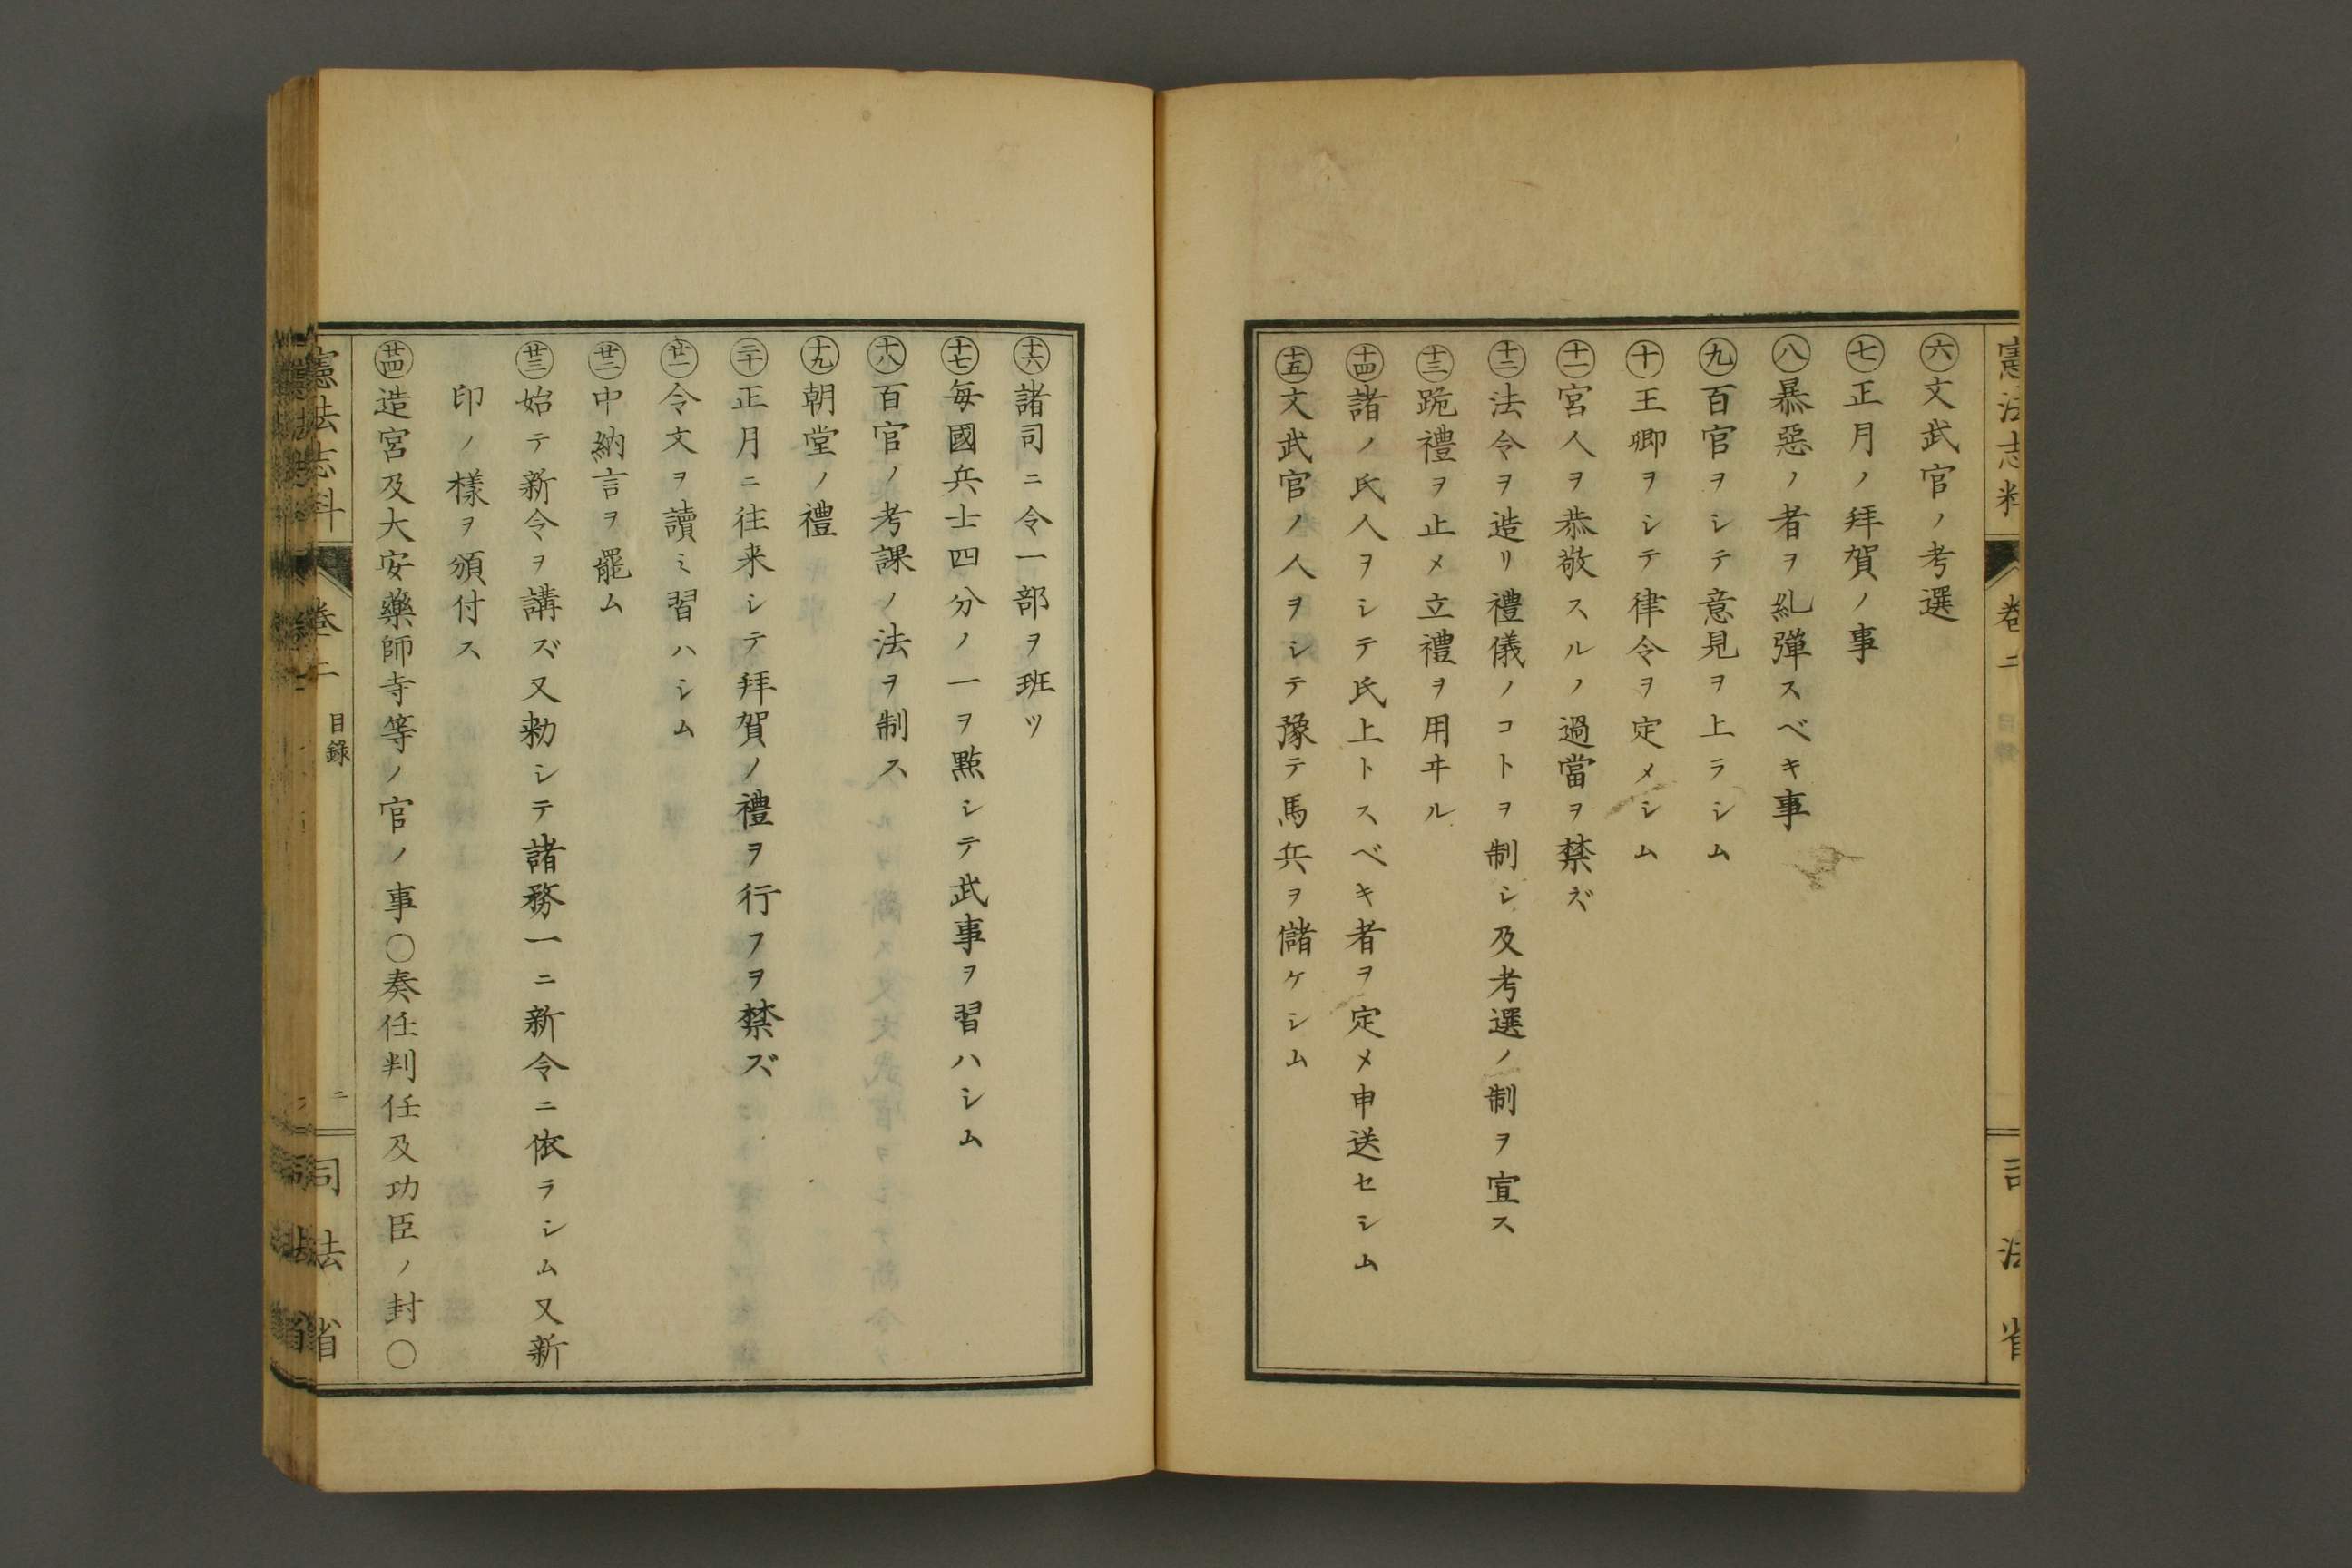 憲法志料 卷二 目錄 司法省
㊅文武官ノ考選
㊆正月ノ拜賀ノ事
㊇暴惡ノ者ヲ糺彈スベキ事
㊈百官ヲシテ意見ヲ上ラシム
㊉王卿ヲシテ律令ヲ定メシム
十一宮人ヲ恭敬スルノ過當ヲ禁ズ
十二法令ヲ造リ禮儀ノコトヲ制シ及考選ノ制ヲ宣ス
十三跪禮ヲ止メ立禮ヲ用ヰル
十四諸ノ氏人ヲシテ氏上トスベキ者ヲ定メ申送セシム
十五文武官ノ人ヲシテ豫テ馬兵ヲ儲ケシム
十六諸司ニ令一部ヲ班ツ
十七每國兵士四分ノ一ヲ㸃シテ武事ヲ習ハシム
十八百官ノ考課ノ法ヲ制ス
十九朝堂ノ禮
二十正月ニ往来シテ拜賀ノ禮ヲ行フヲ禁ズ
廿一令文ヲ讀ミ習ハシム
廿二中納言ヲ罷ム
廿三始テ新令ヲ講ズ又勅シテ諸務一ニ新令ニ依ラシム又新
印ノ樣ヲ頒付ス
廿四造宮及大安藥師寺等ノ官ノ事〇奏任判任及功臣ノ封〇
憲法志料 卷二 目錄 二 司法省